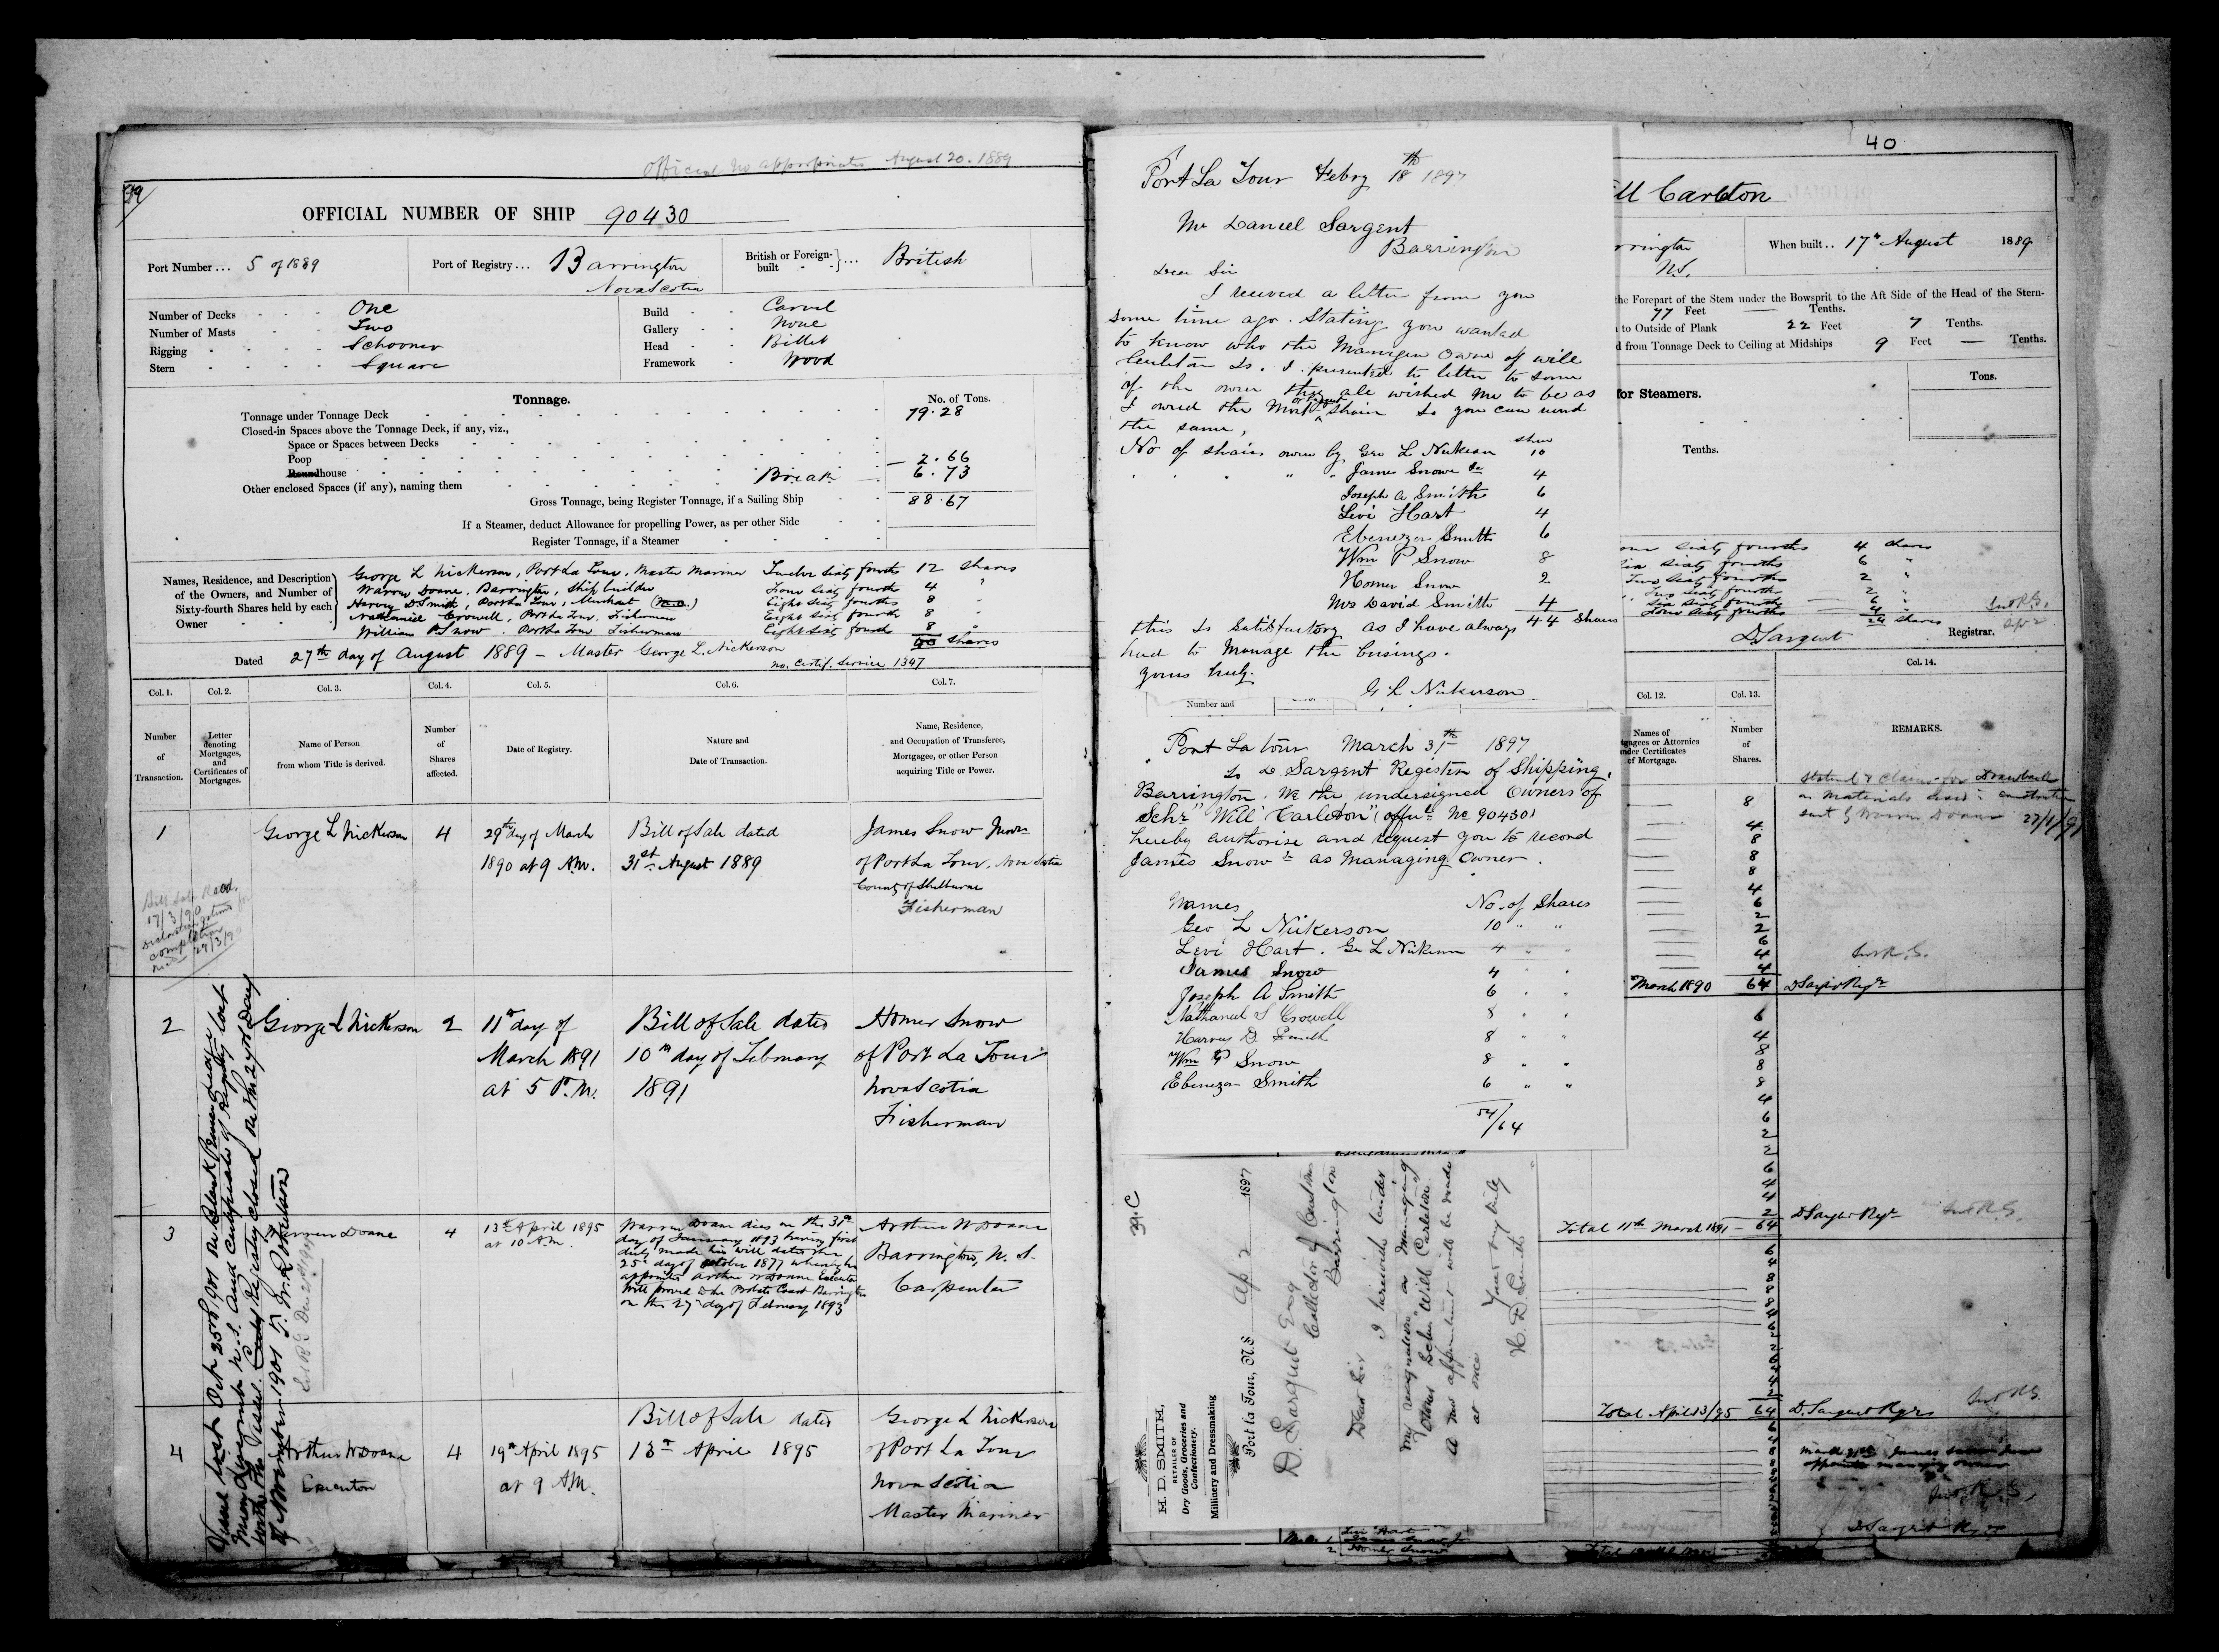 Official No appropriated August 20. 1889
39
OFFICIAL NUMBER OF SHIP 90430
Port Number ... 5 of 1889
Port of Registry ... Barrington
Nova Scotia
British or Foreign-
built - - } ... British
Number of Decks - - - One
Number of Masts - - - Two
Rigging - - - - Schooner
Stern - - - - Square
Build - - Carvel
Gallery - - None
Head - - Billet
Framework - Wood
Tonnage.
No. of Tons.
Tonnage under Tonnage Deck 79.28
Closed-in Spaces above the Tonnage Deck, if any, viz.,
Space or Spaces between Decks
Poop 2.66
Roundhouse Break 6.73
Other enclosed Spaces (if any), naming them
Gross Tonnage, being Register Tonnage, if a Sailing Ship 88.67
If a Steamer, deduct Allowance for propelling Power, as per other Side
Register Tonnage, if a Steamer
Names, Residence, and Description
of the Owners, and Number of
Sixty-fourth Shares held by each
Owner
George L Nickerson, Port La Tour, Master Mariner Twelve Sixty fourths 12 shares
Warren Doane, Barrington, Ship builder Four Sixty fourths 4 "
Harvey D. Smith, Port La Tour, Merchant (M.O.) Eight Sixty fourths 8 "
Nathaniel Crowell, Port La Tour, Fisherman Eight Sixty fourths 8 "
William P Snow, Port La Tour Fisherman Eight Sixty fourths 8 "
40 shares
Dated 27th day of August 1889 - Master George L. Nickerson
No. Certif. Service 1347
Col. 1.
Col. 2.
Col. 3.
Col. 4.
Col. 5.
Col. 6.
Col. 7.
Number
of
Transaction.
Letter
denoting
Mortgages,
and
Certificates of
Mortgages.
Name of Person
from whom Title is derived.
Number
of
Shares
affected.
Date of Registry.
Nature and
Date of Transaction.
Name, Residence,
and Occupation of Transferee,
Mortgagee, or other Person
acquiring Title or Power.
1
George L Nickerson
4
29th day of March
1890 at 9 A.M.
Bill of Sale dated
31st August 1889
James Snow Junr
of Port La Tour, Nova Scotia
County of Shelburne
Fisherman
Bill Sale Recd.
17/3/90
Declaration
completion
recd 29/3/90
2
George L Nickerson
2
11th day of
March 1891
at 5 P.M.
Bill of Sale dated
10th day of February
1891
Homer Snow
of Port La Tour
Nova Scotia
Fisherman
3
Warren Doane
4
13th April 1895
at 10 A.M.
Warren Doane died on the 31st
day of January 1893 having first
duly made his will dated the
25th day of October 1877 wherein he
appointed Arthur W Doane Executor
Will proved in the Probate Court Barrington
on the 27th day of February 1893
Arthur W Doane
Barrington, N.S.
Carpenter
4
Arthur W Doane
Executor
4
19th April 1895
at 9 A.M.
Bill of Sale dated
13th April 1895
George L Nickerson
of Port La Tour
Nova Scotia
Master Mariner
Vessel lost Oct 25th 1901
and Certificate of Registry lost
with the Vessel. Registry closed on this 29th day
of November 1901 T. W. Robertson
Port La Tour Febry 18th 1897
Mr Daniel Sargent
Barrington
Dear Sir
I received a letter from you
some time ago. Stating you wanted
to know who the Manigen Owner of Will
Carleton is. I presented the letter to some
of the owner they all wished me to be as
I owned the Most shairs so you can send
the same,
shers
No of shairs owen by Geo L Nickerson 10
" " " " James Snow Jr 4
Joseph A Smith 6
Levi Hart 4
Ebenezer Smith 6
Wm P Snow 8
Homer Snow 2
Mrs David Smith 4
44 Shares
this is Satisfactory as I have always
had to Manage the busings.
yours truly.
G L Nickerson
Number and
Port La tour March 31st 1897
to D. Sargent Register of Shipping,
Barrington. We the undersigned Owners of
Schr "Will Carleton" (offic No 90430)
hereby authorise and request you to record
James Snow Jr as Managing Owner.
Names No. of Shares
Geo L Nickerson 10 " "
Levi Hart. Geo L Nickerson 4 " "
James Snow 4 " "
Joseph A Smith 6 " "
Nathaniel S Crowell 8 " "
Harvey D. Smith 8 " "
Wm P Snow 8 " "
Ebenezer Smith 6 " "
54/64
39.C
H. D. SMITH,
RETAILER OF
Dry Goods, Groceries and
Confectionery.
Millinery and Dressmaking
Port la Tour, N.S. Ap 2 1897
D. Sargent Esq
Collector of Customs
Barrington
Dear Sir
I herewith tender
my resignation as Managing
Owner Schr "Will Carleton".
A new appointment will be made
at once
Yours very truly
H. D. Smith
40
ill Carleton
rrington
N.S.
When built .. 17th August 1889
the Forepart of the Stem under the Bowsprit to the Aft Side of the Head of the Stern-
77 Feet — Tenths.
to Outside of Plank 22 Feet 7 Tenths.
d from Tonnage Deck to Ceiling at Midships 9 Feet — Tenths.
for Steamers.
Tons.
Tenths.
our sixty fourths 4 shares
Six Sixty fourths 6 "
Two Sixty fourths 2 "
Two Sixty fourths 2 "
Six Sixty fourths 6 "
Four Sixty fourths 4 "
24 shares
D Sargent Registrar.
Col. 12.
Col. 13.
Col. 14.
Names of
tgagees or Attornies
nder Certificates
of Mortgage.
Number
of
Shares.
REMARKS.
Statement & Claim for Drawback
on Materials used in construction
sent by Warren Doane 22/1/91
8
4
8
8
8
4
6
2
2
6
4
4
March 1890 64 D Sargent Regr
6
4
8
8
8
4
6
2
2
6
4
4
2
Total 11th March 1891 - 64 D Sargent Regr
Total April 13/95 64 D. Sargent Regr
D Sargent Regr